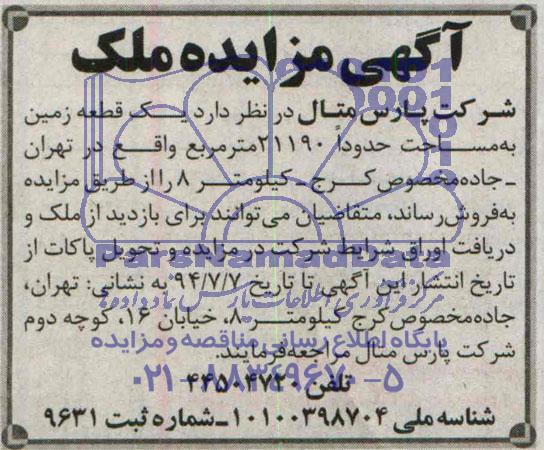 آگهی مزایده ملک
شرکت پارس متال در نظر دارد یک قطعه زمین
به‌مساحت حدوداً ۲۱۱۹۰مترمربع واقع در تهران
ـ جاده‌مخصوص کرج ـ کیلومتر ۸ را از طریق مزایده
به‌فروش‌رساند، متقاضیان می‌توانند برای بازدید از ملک و
دریافت اوراق شرایط شرکت در مزایده و تحویل پاکات از
ParsNamadData
تاریخ انتشار این آگهی تا تاریخ ۹۴/۷/۷ به نشانی: تهران،
مرکز فرآوری اطلاعات پارس نماد داده‌ها
جاده‌مخصوص کرج کیلومتر ۸، خیابان ۱۶، کوچه دوم
پایگاه اطلاع رسانی مناقصه و مزایده
شرکت پارس متال مراجعه‌فرمایند.
تلفن ۴۴۵۰۴۷۲۰
۰۲۱-۸۸۳۴۹۶۷۰-۵
شناسه ملی ۱۰۱۰۰۳۹۸۷۰۴ـ شماره ثبت ۹۶۳۱